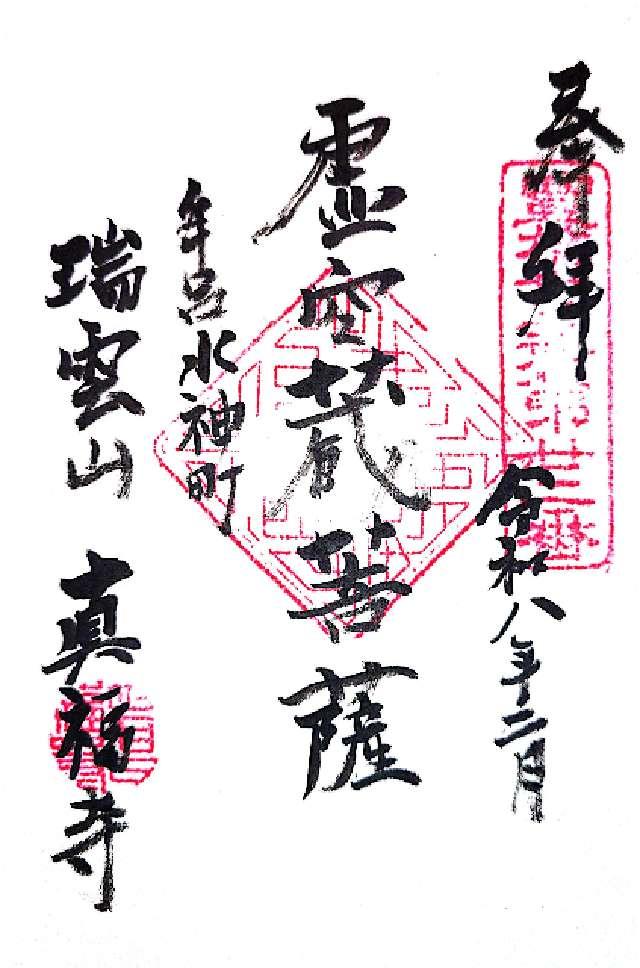 奉拝
令和八年二月
虚空蔵菩薩
牟呂水神町
瑞雲山
真福寺